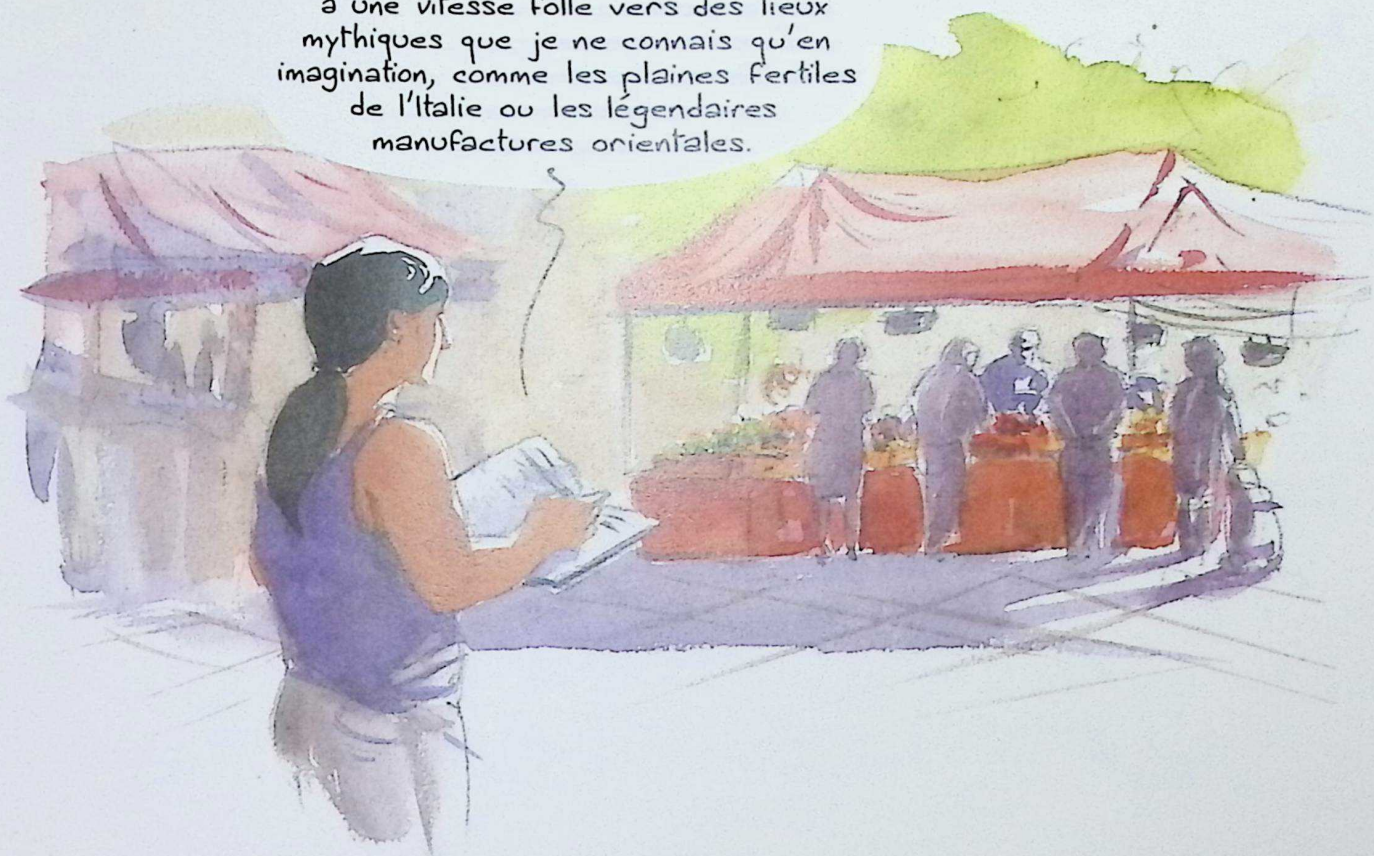 à une vitesse folle vers des lieux
mythiques que je ne connais qu'en
imagination, comme les plaines fertiles
de l'Italie ou les légendaires
manufactures orientales.